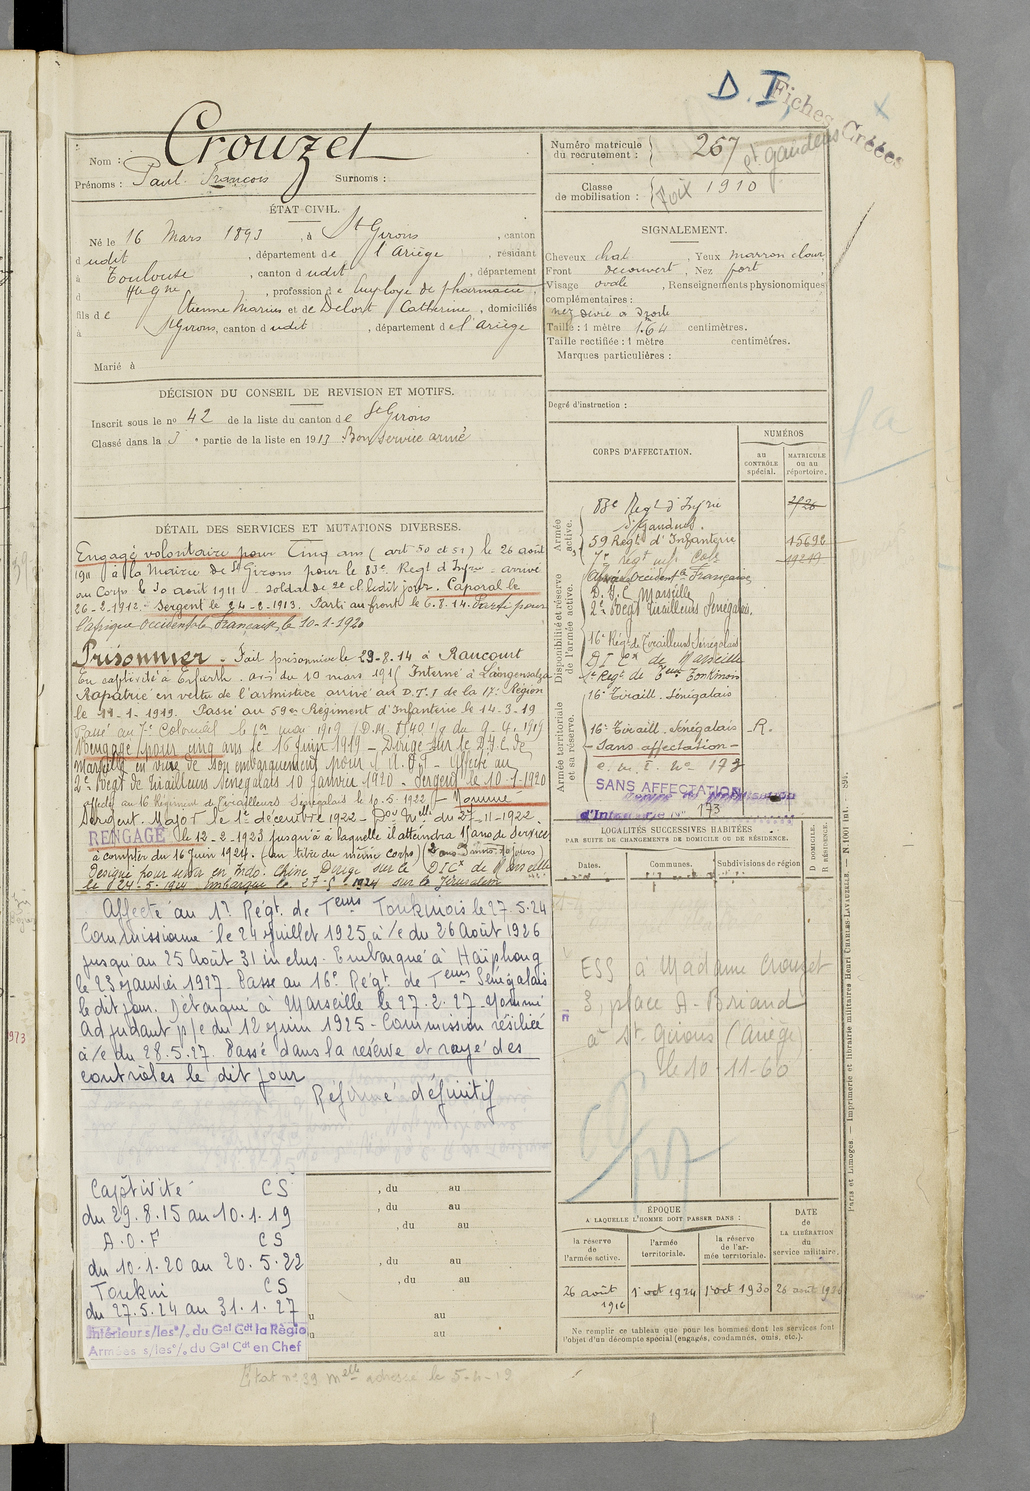 D. I.
Fiches Créées
Crouzet
Nom :
Prénoms : Paul François Surnoms :
Numéro matricule du recrutement : 267
St Gaudens
Classe de mobilisation : Foix 1910
ÉTAT CIVIL.
Né le 16 Mars 1893, à St Girons, canton
d udit, département de l'Ariège, résidant
à Toulouse, canton d udit, département
d Hte Gne, profession de Employé de pharmacie,
fils de Etienne Marius et de Delort Catherine, domiciliés
à St Girons, canton d udit, département de l'Ariège
Marié à
SIGNALEMENT.
Cheveux chat. Yeux marron clair
Front découvert, Nez fort
Visage ovale, Renseignements physionomiques
complémentaires :
nez dévié à droite
Taille : 1 mètre 64 centimètres.
Taille rectifiée : 1 mètre centimètres.
Marques particulières :
Degré d'instruction :
DÉCISION DU CONSEIL DE REVISION ET MOTIFS.
Inscrit sous le no 42 de la liste du canton de St Girons
Classé dans la 3e partie de la liste en 1913 Bon service armé
DÉTAIL DES SERVICES ET MUTATIONS DIVERSES.
Engagé volontaire pour Cinq ans (art 50 et 51) le 26 août
1911 à la Mairie de St Girons pour le 83e Regt d'Infrie arrivé
au Corps le 30 août 1911 soldat de 2e cl. ledit jour. Caporal le
26-2-1912. Sergent le 24-2-1913. Parti au front le 6.8.14. Parti pour
l'Afrique Occidentale Française le 10-1-1920
Prisonnier. Fait prisonnier le 29-8-14 à Raucourt
En captivité à Erfurth. avis du 10 mars 1915 Interné à Langensalza
Rapatrié en vertu de l'armistice arrivé au D.T.I de la 17e Région
le 19-1-1919. Passé au 59e Régiment d'Infanterie le 14-3-19
Passé au 7e Colonial le 1er mai 1919 (D.M. 1140 1/8 du 9-4-1919
Rengagé pour cinq ans le 16 Juin 1919 - Dirigé sur le D.I.C. de
Marseille en vue de son embarquement pour l'A.O.F - Affecté au
2e Regt de Tirailleurs Sénégalais 10 Janvier 1920 - Sergent le 10-1-1920
Affecté au 16 Régiment de Tirailleurs Sénégalais le 10.5.1922 - Nommé
Sergent-Major le 1e décembre 1922 - Don Melle du 27-11-1922.
RENGAGÉ le 12-2-1923 jusqu'à laquelle il atteindra 15 ans de Service
à compter du 16 Juin 1924. (au titre du même corps)
désigné pour servir en Indo-Chine Dirigé sur le DICx de Marseille
le 24-5-1924 embarqué le 27-5-1924 sur le Jérusalem
Affecté au 1er Régt. de Teurs Tonkinois le 27.5.24
Commissionné le 24 juillet 1925 à/c du 26 Août 1926
jusqu'au 25 Août 31 inclus. Embarqué à Haïphong
le 23 janvier 1927. Passé au 16e Régt. de Teurs Sénégalais
le dit jour. Débarqué à Marseille le 27.2.27 - Nommé
Adjudant p/c du 12 juin 1925 - Commission résiliée
à/c du 28.5.27. Passé dans la réserve et rayé des
contrôles le dit jour
Réformé définitif
Captivité CS
du 29.8.15 au 10.1.19
A.O.F CS
du 10.1.20 au 20.5.22
Tonkin CS
du 27.5.24 au 31.1.27
Intérieur s/les o/. du Gal Cdt la Régio
Armées s/les o/. du Gal Cdt en Chef
, du au
, du au
, du au
, du au
, du au
u au
u au
État no 39 Melle adressé le 5-4-19
CORPS D'AFFECTATION.
NUMÉROS
au CONTRÔLE spécial.
MATRICULE ou au répertoire.
Armée active.
83e Regt d'Infrie 2/26
St Gaudens.
59 Regt d'Infanterie 15692
7e regt inf Cole 19219
Disponibilité et réserve de l'armée active.
Afrique Occidentle Française
D.I.C Marseille
2e Regt Tirailleurs Sénégalais.
16e Régt de Tirailleurs Sénégalais
D I Cx de Marseille
1er Regt de Teurs Tonkinois
16e Tiraill. Sénégalais
Armée territoriale et sa réserve.
16e Tiraill. Sénégalais - R.
- Sans affectation -
c. m. I. No 173
SANS AFFECTATION
d'Infanterie no 173
LOCALITÉS SUCCESSIVES HABITÉES
PAR SUITE DE CHANGEMENTS DE DOMICILE OU DE RÉSIDENCE.
D DOMICILE.
R RÉSIDENCE.
Dates. Communes. Subdivisions de région
ESS à Madame Crouzet
3, place A. Briand
à St Girons (Ariège)
le 10-11-60
ÉPOQUE
A LAQUELLE L'HOMME DOIT PASSER DANS :
DATE DE LA LIBÉRATION du service militaire.
la réserve de l'armée active.
l'armée territoriale.
la réserve de l'armée territoriale.
26 août 1916
1er oct 1924
1er oct 1930
26 août 1936
Ne remplir ce tableau que pour les hommes dont les services font
l'objet d'un décompte spécial (engagés, condamnés, omis, etc.).
Paris et Limoges. — Imprimerie et librairie militaires Henri CHARLES-LAVAUZELLE. — N. 1001 bis.